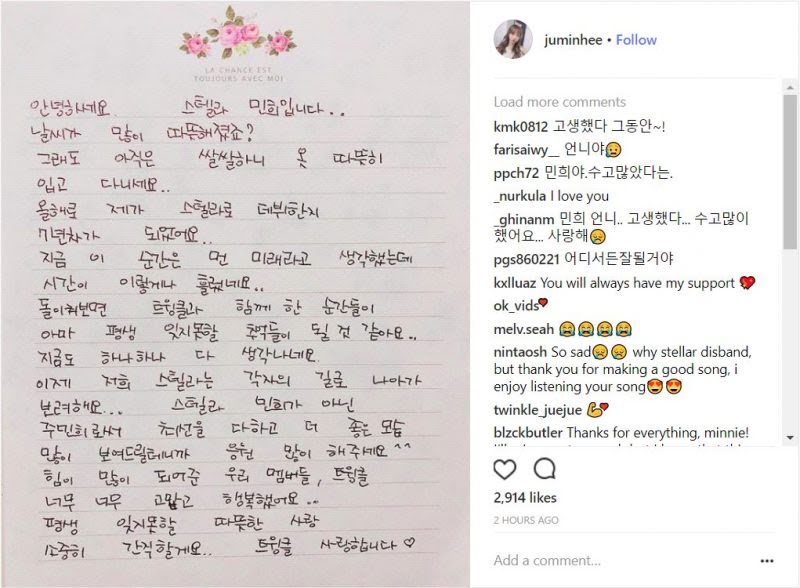 LA CHANCE EST
TOUJOURS AVEC MOI
안녕하세요 스텔라 민희입니다..
날씨가 많이 따뜻해졌죠?
그래도 아직은 쌀쌀하니 옷 따뜻히
입고 다니세요..
올해로 제가 스텔라로 데뷔한지
7년차가 되었어요..
지금 이 순간은 먼 미래라고 생각했는데
시간이 이렇게나 흘렀네요..
돌이켜보면 트윙클과 함께 한 순간들이
아마 평생 잊지못할 추억들이 될 것 같아요..
지금도 하나하나 다 생각나네요.
이제 저희 스텔라는 각자의 길로 나아가
보려해요... 스텔라 민희가 아닌
주민희로서 최선을 다하고 더 좋은 모습
많이 보여드릴테니까 응원 많이 해주세요^^
힘이 많이 되어준 우리 멤버들, 트윙클
너무 너무 고맙고 행복했어요..
평생 잊지못할 따뜻한 사랑
소중히 간직할게요.. 트윙클 사랑합니다♡
juminhee • Follow
Load more comments
kmk0812 고생했다 그동안~!
farisaiwy__ 언니야😥
ppch72 민희야.수고많았다는.
_nurkula I love you
_ghinanm 민희 언니.. 고생했다... 수고많이
했어요... 사랑해😢
pgs860221 어디서든잘될거야
kxlluaz You will always have my support 💖
ok_vids💕
melv.seah 😭😭😭😭
nintaosh So sad😢😢 why stellar disband,
but thank you for making a good song, i
enjoy listening your song😍😍
twinkle_juejue 💪💕
blzckbutler Thanks for everything, minnie!
2,914 likes
2 HOURS AGO
Add a comment...